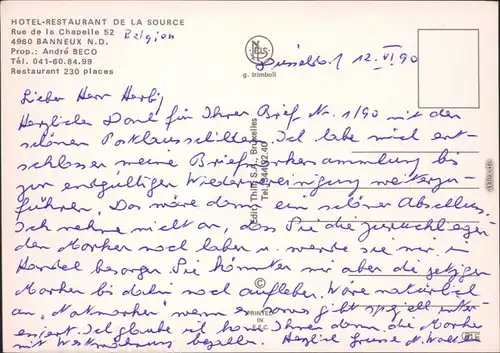 HOTEL-RESTAURANT DE LA SOURCE
Rue de la Chapelle 52
4960 BANNEUX N.D. Belgien
Prop.: André BECO
Tél. 041-60.84.99
Restaurant 230 places
NELS
g. trimboli
Düsseldorf 12. VI. 90
Lieber Herr
Herzlichen Dank für Ihren Brief Nr. 1/90 mit den
schönen Ich habe mich ent-
schlossen meine Briefmarkensammlung bis
zur endgültigen Wiedervereinigung weiterzu-
führen. Das wäre dann ein schöner Abschluss.
Ich nehme nicht an, dass Sie die zurückliegen-
den Marken noch haben u. werde sie mir im
Handel besorgen. Sie könnten mir aber die jetzigen
Marken bis dahin noch aufheben. Wäre natürlich
an "Notmarken" wenn es was gibt speziell inter-
essiert. Ich glaube ich Ihnen dann die Marken
mit Herzliche Grüsse
Edit. Thill S.A., Bruxelles
©
PRINTED
IN
E.E.C.